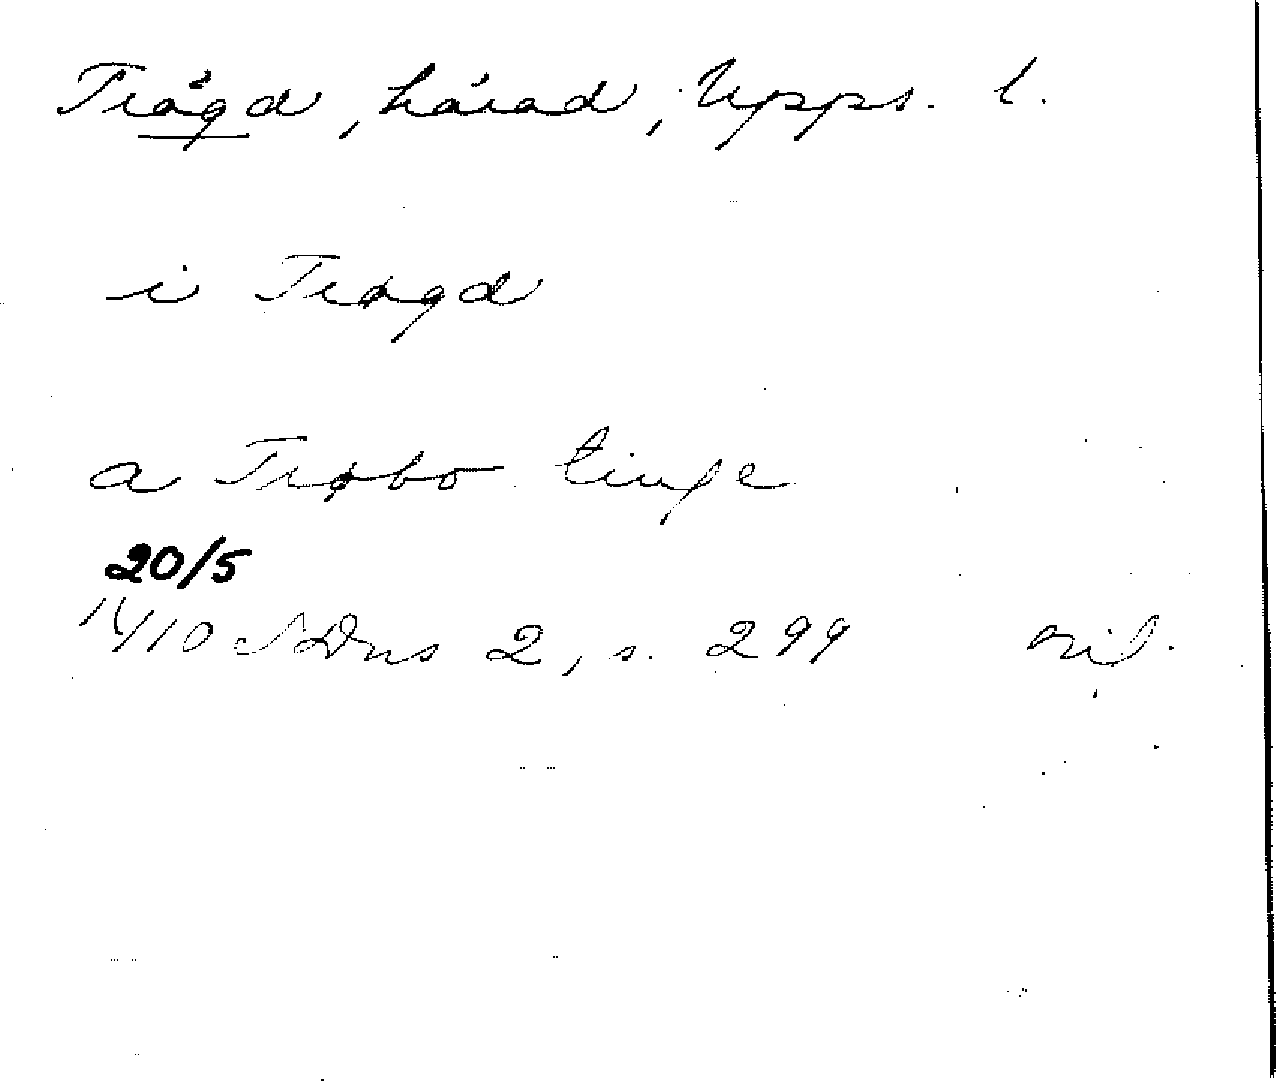 Trögd, härad, Upps. l.
i Trøgd
a Trøbo tinge
20/5
1410 SDns 2, s. 299 avl.